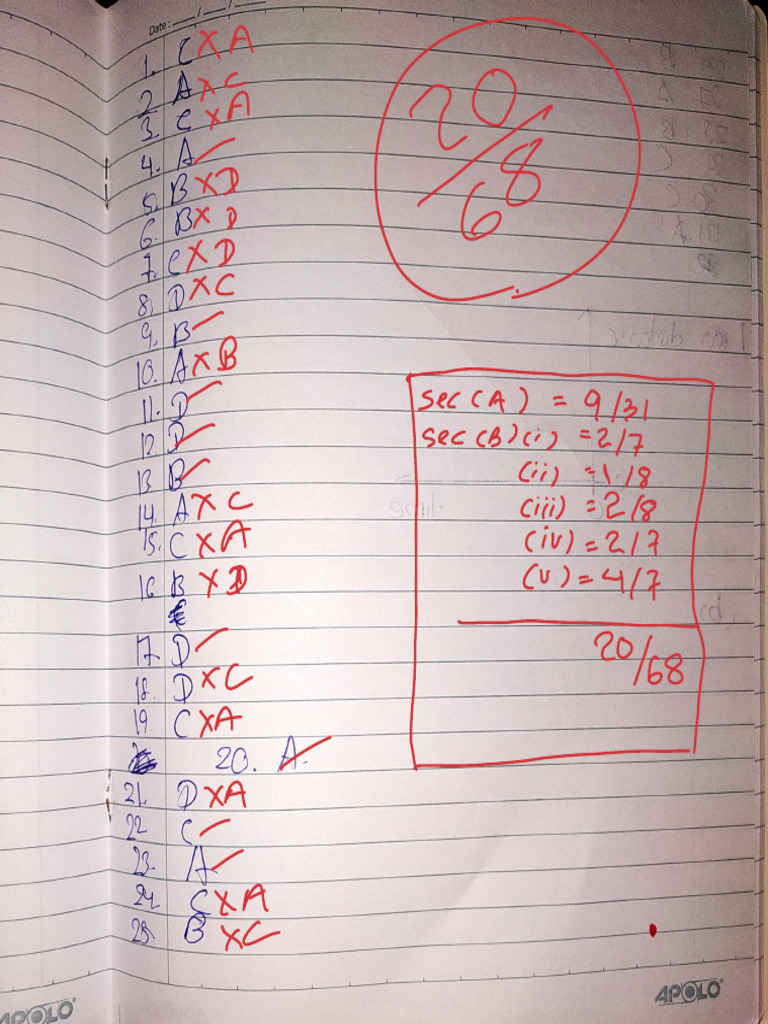 Date : ___ / ___ / ___
1. C X A
2 A X C
3. C X A
4. A ✓
5. B X D
6. B X D
7. C X D
8. D X C
9. B ✓
10. A X B
11. D ✓
12. D ✓
13 B ✓
14. A X C
15. C X A
16 B X D
17. D ✓
18. D X C
19. C X A
20. A ✓
21. D X A
22 C ✓
23. A ✓
24. C X A
25. B X C
20/68
sec (A) = 9/31
sec (B) (i) = 2/7
(ii) = 1/8
(iii) = 2/8
(iv) = 2/7
(v) = 4/7
20/68
APOLO
APOLO